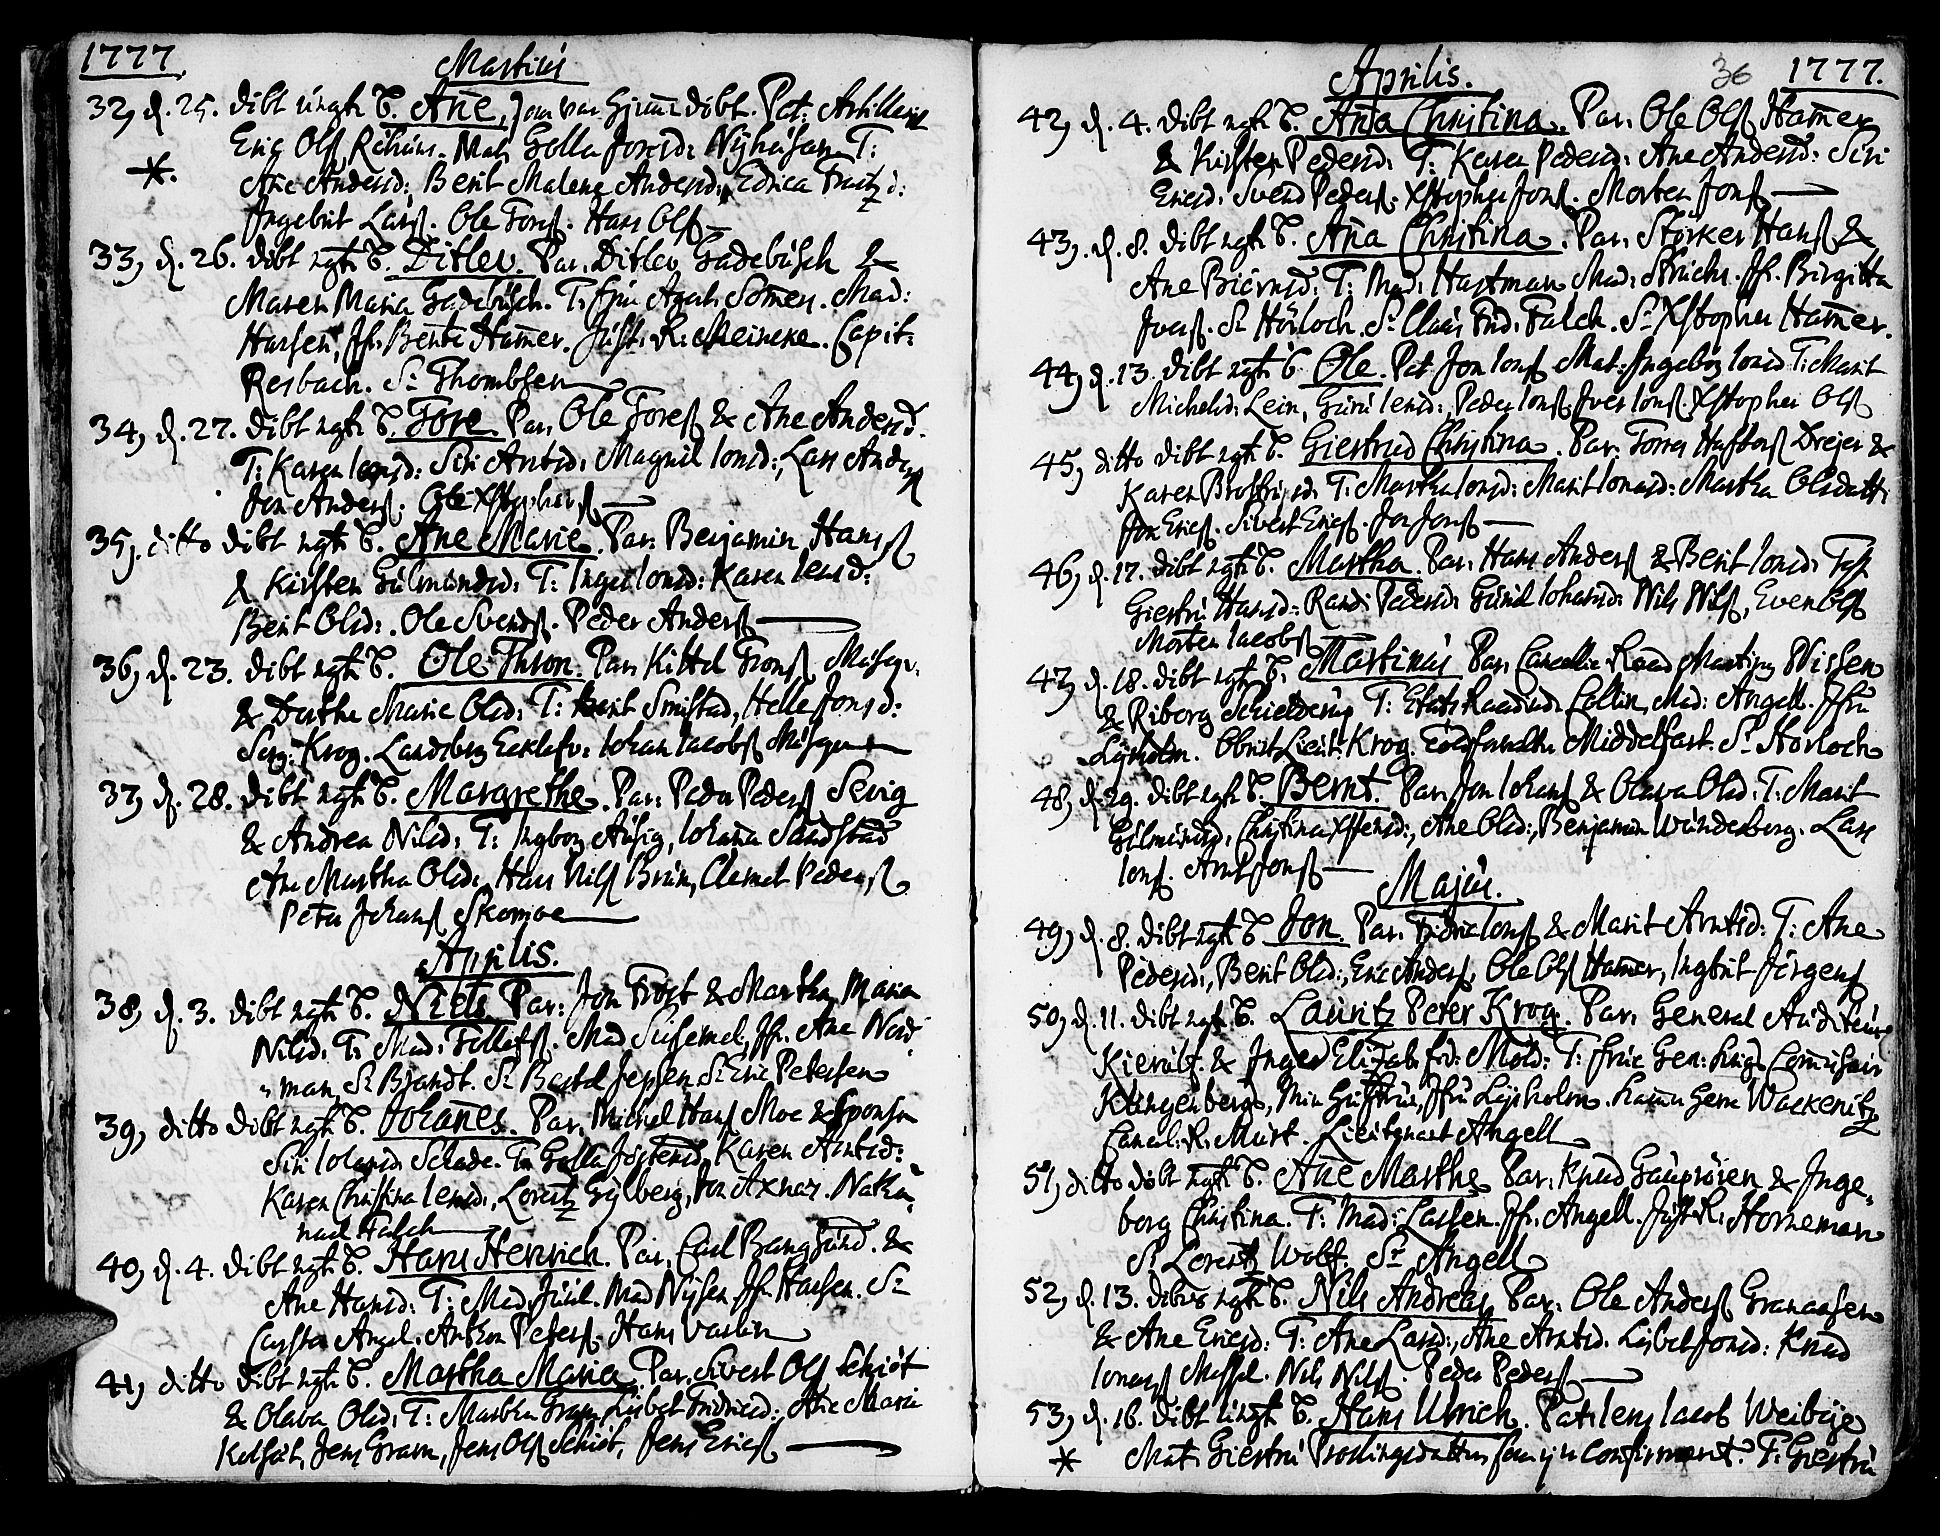 1777. Martius
32, d. 25. dibt ungt. B. Ane, som var hjeme döbt. Pat. Artillerist
Eric Ols. Mat. Golla Jonsd: Nijhusen T:
*. Ane Andersd: Berit Malene Andersd:
Ingebrit Lars. Ole Tores. Hans Ols
33, d. 26. dibt ngt. B. Ditlev. Par. Ditlev Gadebusch &
Maren Maria Gadebusch. T. Somer. Mad:
Hassen, Jfr. Bente Hamer. Just. R. Meineke. Capit:
Resbach. Sr Thombsen
34, d. 27. dibt ngt. B. Tore Par. Ole Tores & Ane Andersd.
T: Karen Siri Arntsd: Magnil Ionsd:, Lars Anders
Jon Anders. Ole Xstophers
35, ditto dibt ngt. B. Ane Marie. Par. Benjamin Hans
& Kirsten Gulmundsd: T: Inger Ionsd: Karen Iensd:
Berit Olsd:. Ole Svends. Peder Anders
36, d. 23. dibt ngt. B. Ole Thron. Par. Kittel Trons
& Dorthe Marie Olsd: T: Berit Smistad, Helle Jonsd:
Serg: Krog. Landsberg Iohan Iacobs
37, d. 28. dibt ngt. B. Margrethe. Par. Peder Peders Sevig
& Andrea Nilsd: T: Ingborg Ausig, Iohana Sandstad
Ane Martha Olsd. Hans Nils Brun, Clemet Peders
Peter Johans Skomoe
Aprilis.
38, d. 3. dibt ngt. B. Niels Par: Jon Frost & Martha Maria
Nilsd. T. Mad. Mad Jfr. Ane Nord
man, Sr Brandt. Sr Bertel Jepsen Sr Eric Petersen
39, ditto dibt ngt. B. Iohanes. Par. Michel Hans Moe & Sponsa
Siri T. Golla Karen Arntsd:
Karen Christina Iensd:, Lorentz Gylberg, Jon Axnes. Natha-
nael Falch
40, d. 4. dibt ngt. B. Hans Henrich. Par. Carl Bang & 
Ane Hansd. T: Mad. Juul. Mad Nissen Jfr. Hassen. Sr
Carsten Angel. Anthon Peters. Hans
41, ditto dibt ngt. B. Martha Maria Par. Sivert Ols Schiöt
& Olava Olsd. T: Martha Gram, Lisbet Fridricsd: Ane Maria
Jens Gram, Jens Ols Schiöt, Jens Erics
Aprilis. 36 1777.
42, d. 4. dibt ngt. B. Ana Christina. Par. Ole Ols Hamer
& Kirsten Pedersd. T: Karen Pedersd: Ane Andersd: Siri
Ericsd. Svend Peders. Xstopher Jons. Morten Jons
43, d. 8. dibt ngt. B. Ana Christina. Par. Störker Hans &
Ane Biörnsd: T: Mad. Hartman Mad: Jfr. Birgitta
Ivers. Sr Hörloch. Sr Claus Falch. Sr Xstopher Hamer.
44, d. 13. dibt ngt. B. Ole. Pat Jon Ions Mat: Ingeborg Ionsd T: Marit
Michelsd. Lein, Guru Iensd:, Peder Ions Iver Ions. Xstopher Ols
45, ditto dibt ngt. B. Giertrud Christina. Par. Torres Dreyer &
Karen T: Martha Ionsd: Marit Ionasd: Martha Olsdatter
Jon Erics. Sivert Erics. Jon Jons
46, d. 17. dibt ngt. B. Martha. Par. Hans Anders & Berit Ionsd. Test
Giertru Hansd: Randi Pedersd. Gunil Iohansd. Nils Nils, Even Ols
Morten Iacobs
47, d. 18. dibt ngt. B. Martinus Par. Cancellie Raad Martin Nissen
& Riborg Schielderup T: Etats Raadind. Collin, Mad: Angell. Jfru
Lysholm. Obrist Lieut. Krog. Middelfart. Sr Horloch
48, d. 29. dibt ngt. B. Bernt. Par. Jon Iohans & Olava Olsd. T: Marit
Gulmundsd, Christina Ane Olsd:, Benjamin Wunderberg. Lars
Ions. Arnt Jons
Majus.
49, d. 8. dibt ngt. B. Jon. Par. Fidric Ions & Marit Arntsd: T: Ane
Pedersd:, Berit Olsd:, Eric Anders, Ole Ols Hamer, Ingbrit Jörgens
50, d. 11. dibt ngt. B. Lauritz Peter Krog. Par. General Auditeur
Kierulf. & Inger Elisab. T: Frue Gen: Krigs Comissair
Klingenberg, Min Jfru Lysholm. Wackenitz
Cancel. R. Lieutenant Angell
51, ditto döbt ngt. B. Ane Marthe Par. Knud Gauprören & Inge-
borg Christina. T: Mad: Lassen. Jfr. Angell. Just R. Horneman
Sr Lorentz Wolff. Sr Angell
52, d. 13. dibt ngt. B. Nils Andreas Par. Ole Anders Granaasen
& Ane Ericsd: T: Ane Larsd:, Ane Arntsd. Lisbet Jonsd: Knud
Nils Nils. Peder Peders
53, d. 16. dibt ungt. B. Hans Ulrich. Pat: Iens Iacob Weibye
* Mat. Giertru confirmeret. T: Giertru